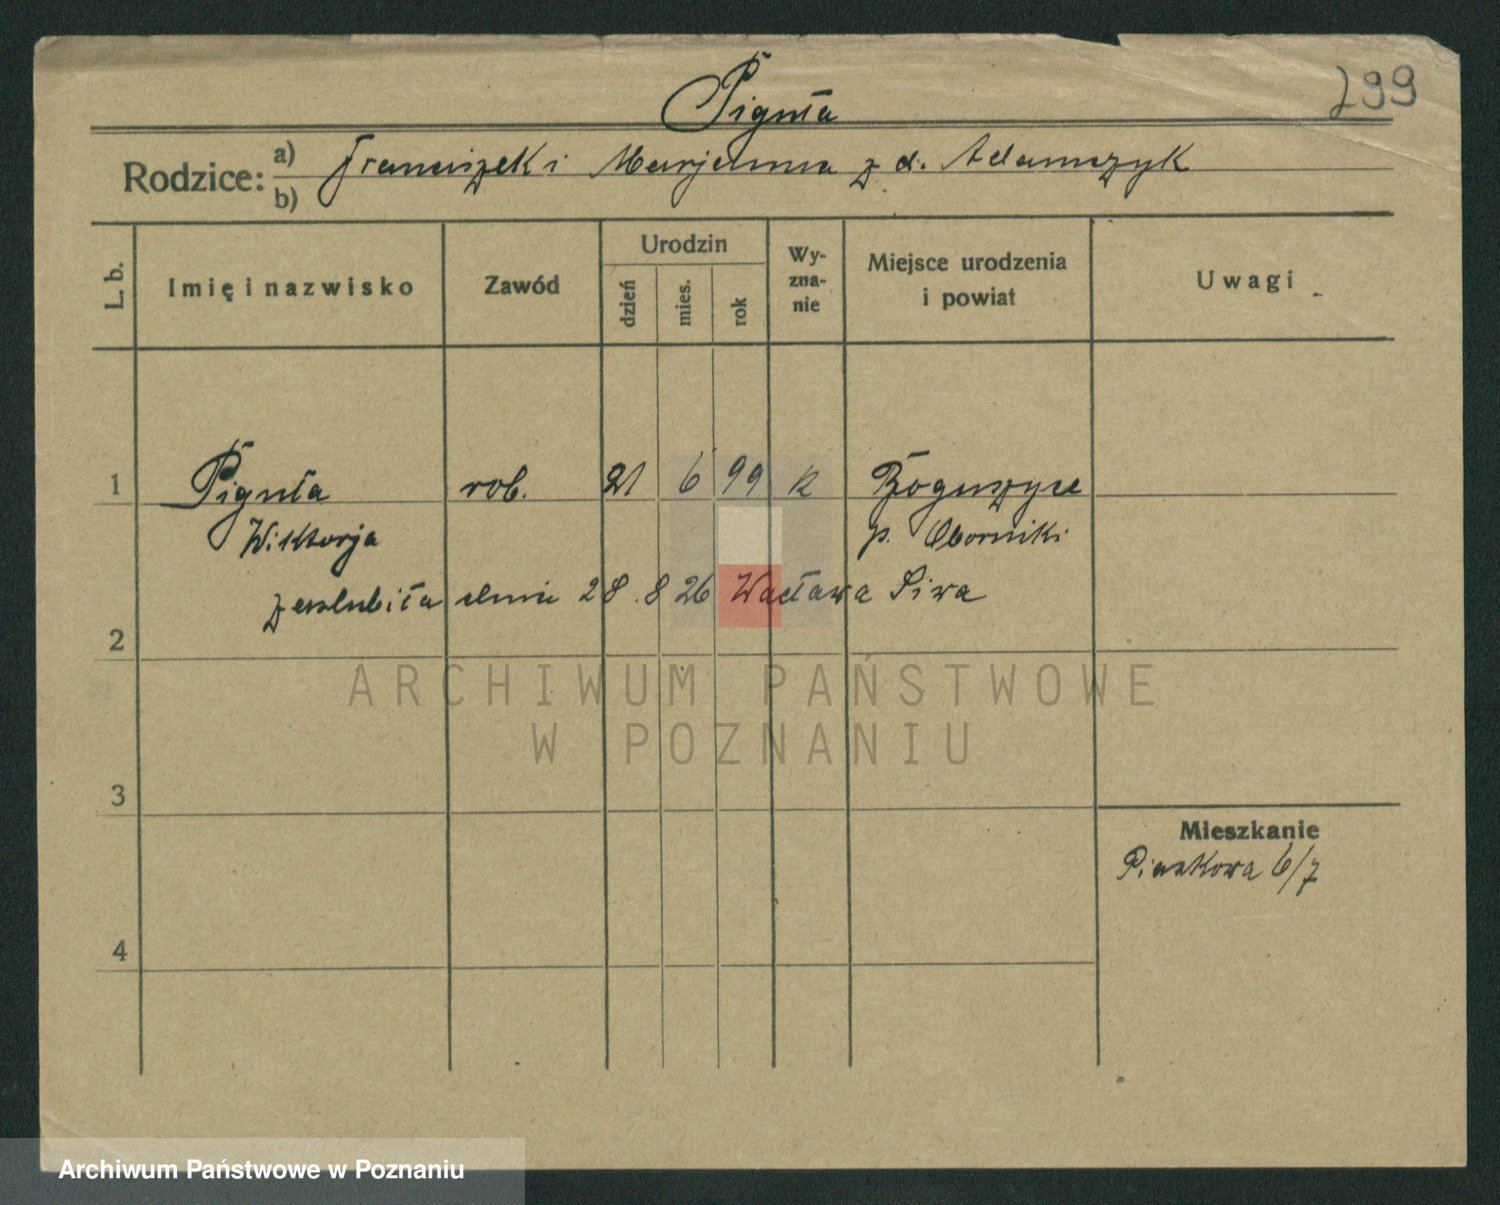 Piguła
299
Rodzice: a) Franciszek i Marjanna z d. Adamczyk
b)
L. b.
Imię i nazwisko
Zawód
Urodzin
dzień
mies.
rok
Wy-
zna-
nie
Miejsce urodzenia
i powiat
Uwagi
1 Piguła rob. 21 6 99 k Boguszyce
Wiktorja p. Oborniki
zaślubiła dnia 28.8 26 Wacława Siwa
2
ARCHIWUM PAŃSTWOWE
W POZNANIU
3
Mieszkanie
Piaskowa 6/7
4
Archiwum Państwowe w Poznaniu